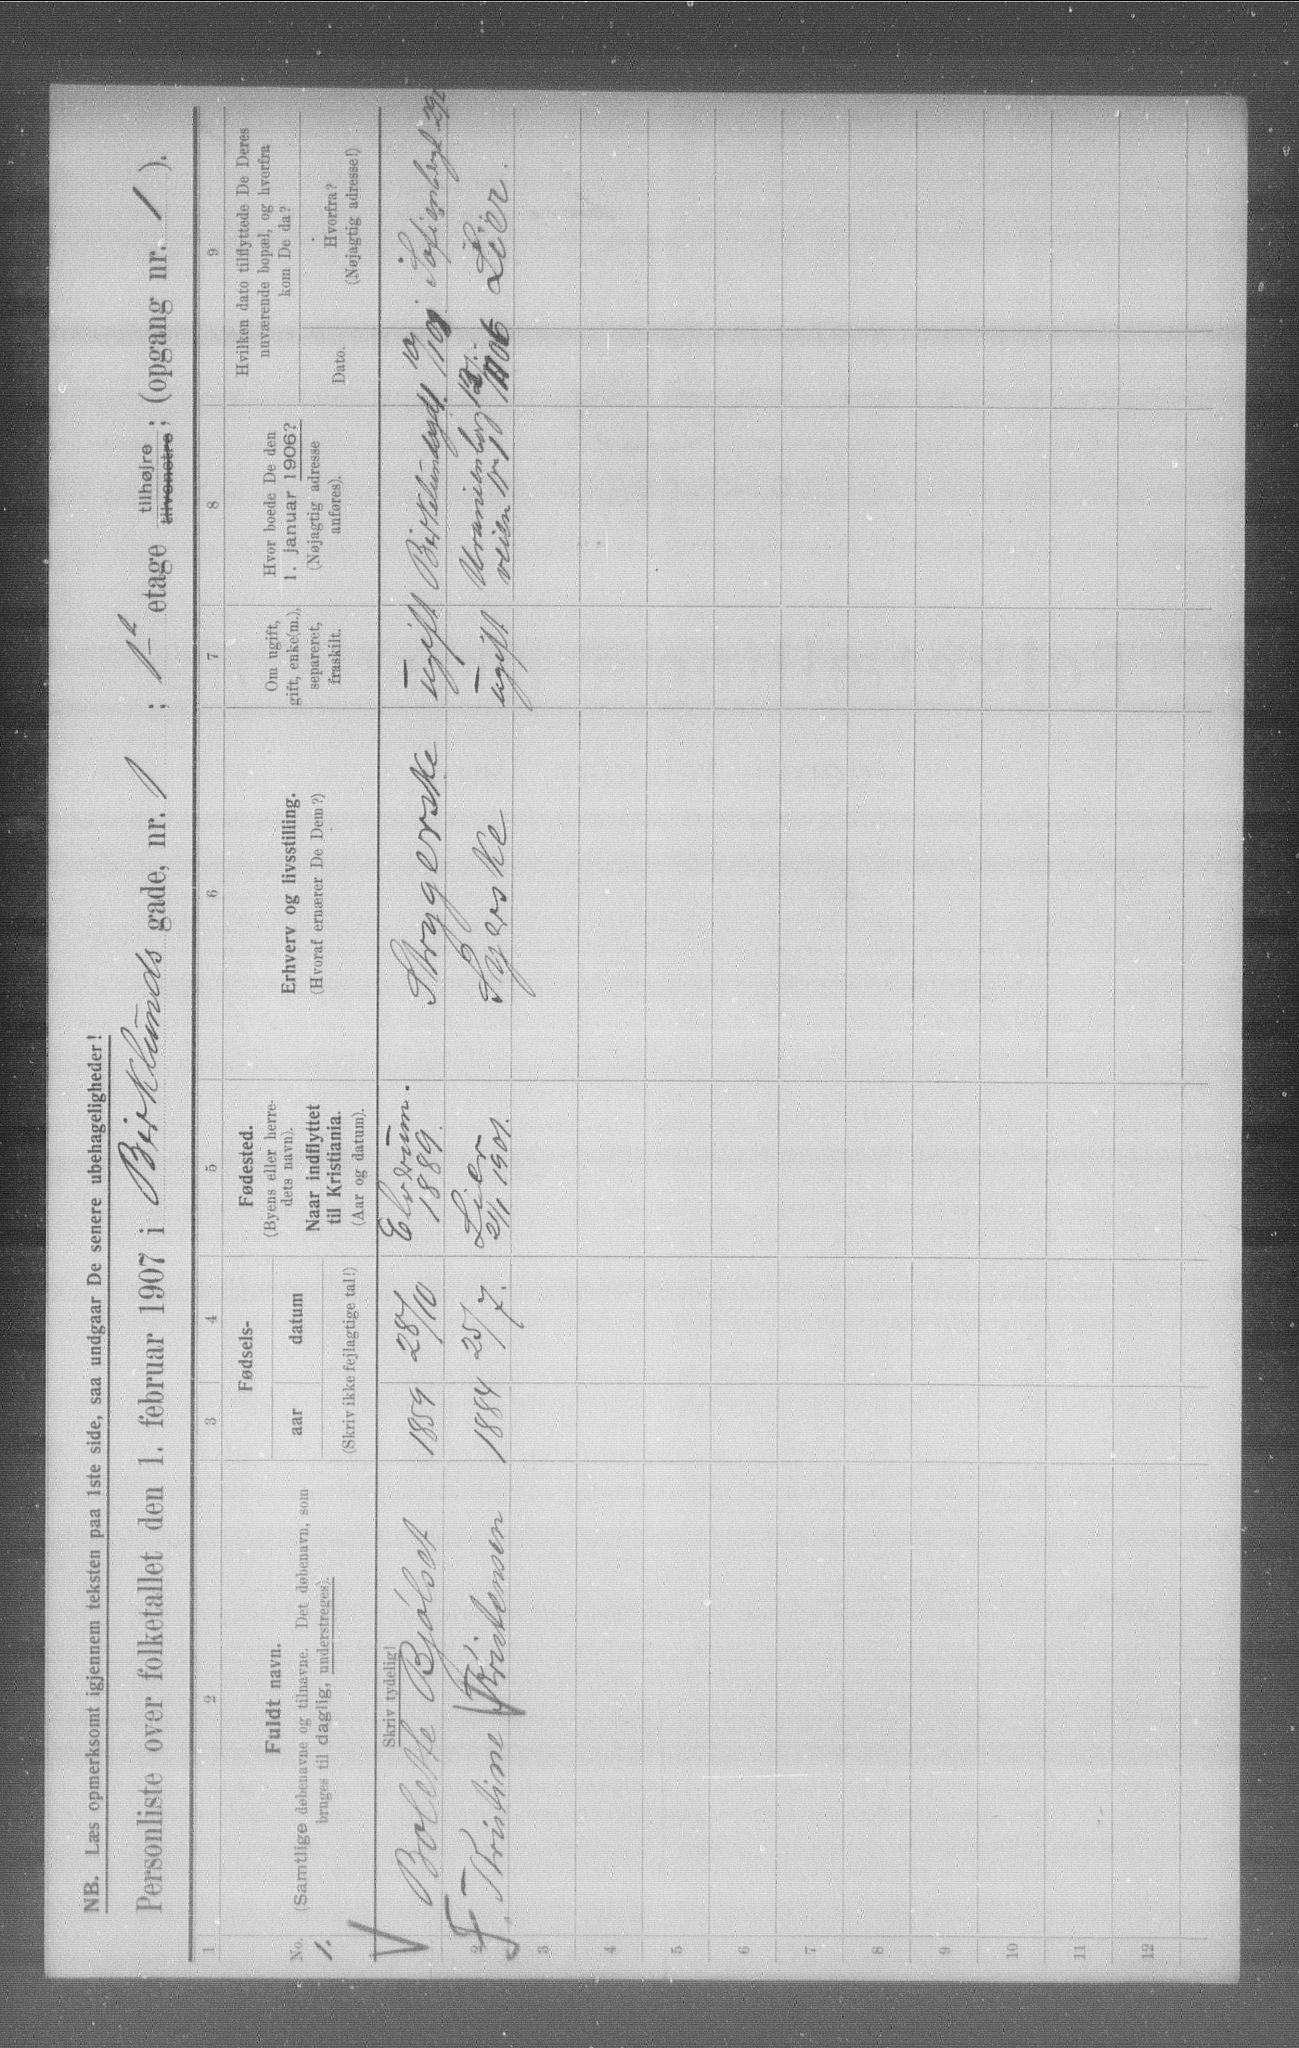 NB. Læs opmerksomt igjennem teksten paa 1ste side, saa undgaar De senere ubehageligheder!
Personliste over folketallet den 1. februar 1907 i Birklunds gade, nr. 1 ; 1 etage tilhøjre tilvenstre ; (opgang nr. 1 ).
1 2 3 4 5 6 7 8 9
No.
Fuldt navn.
(Samtlige døbenavne og tilnavne. Det døbenavn, som
bruges til daglig, understreges).
Fødsels-
aar datum
(Skriv ikke fejlagtige tal!)
Fødested.
(Byens eller herre-
dets navn).
Naar indflyttet
til Kristiania.
(Aar og datum).
Erhverv og livsstilling.
(Hvoraf ernærer De Dem?)
Om ugift,
gift, enke(m.),
separeret,
fraskilt.
Hvor boede De den
1. januar 1906?
(Nøjagtig adresse
anføres).
Hvilken dato tilflyttede De Deres
nuværende bopæl, og hvorfra
kom De da?
Dato.
Hvorfra?
(Nøjagtig adresse!)
Skriv tydelig!
1. Bolette Bjølset 1859 28/10 Elvrum. 1889. Strygerske ugift
2 Kristine Kristensen 1884 25/7. Lier 2/1 1901. Syerske ugift Uranienborg veien Lier.
3
4
5
6
7
8
9
10
11
12